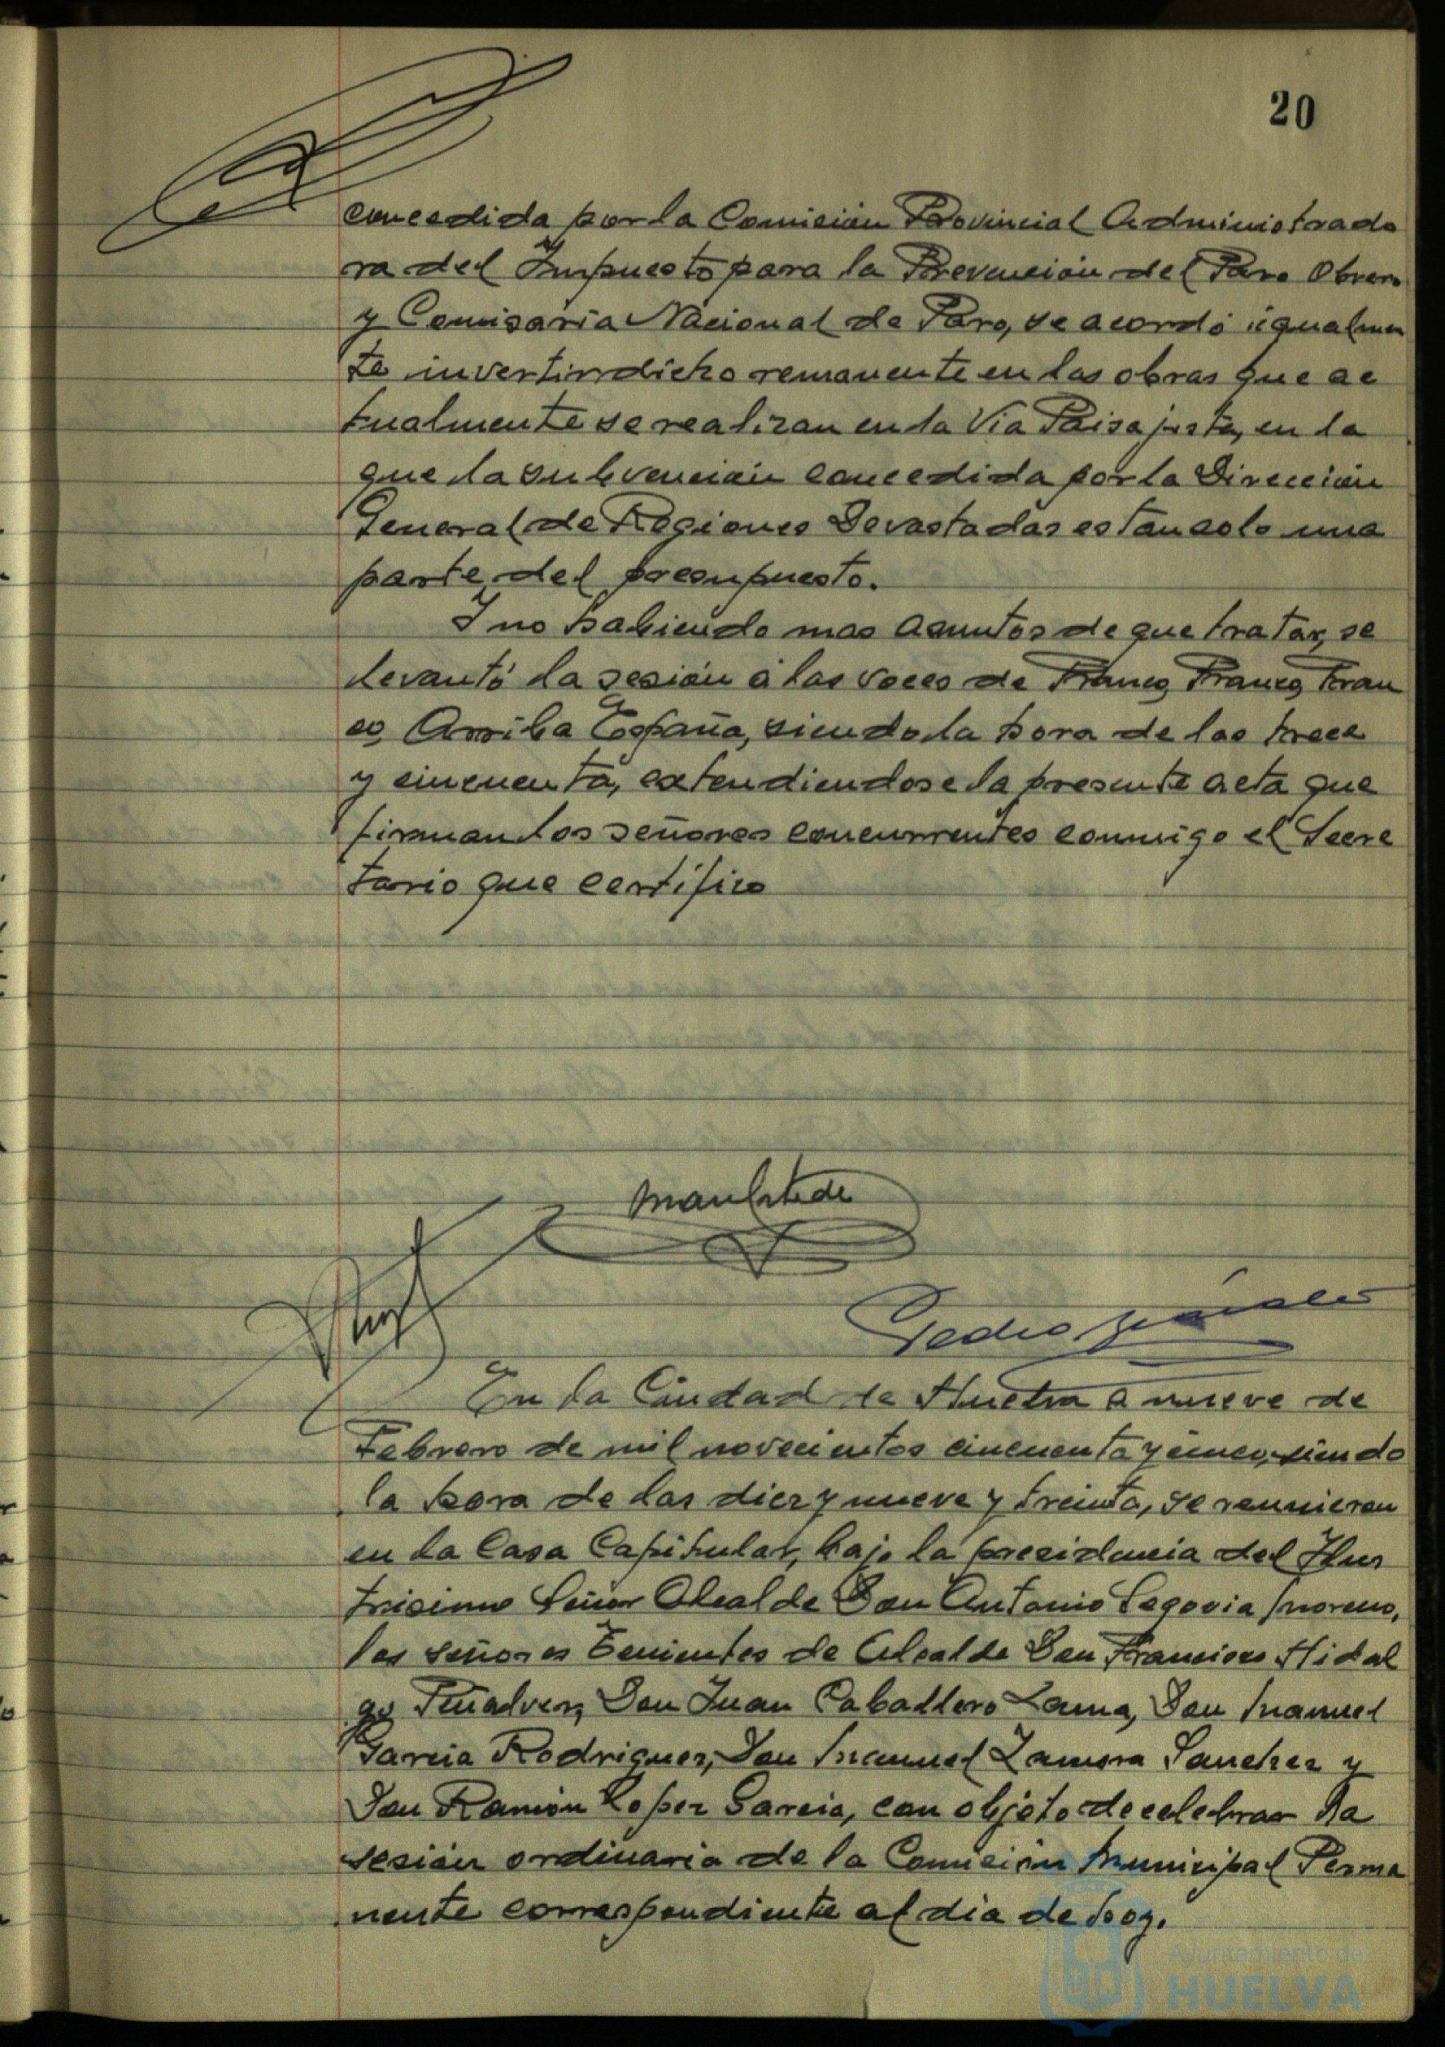 20
concedida por la Comisión Provincial Administrado
ra del Impuesto para la Prevención del Paro Obrero
y Comisaría Nacional de Paro, se acordó igualmen
te invertir dicho remanente en las obras que ac
tualmente se realizan en la Via Paisajista, en la
que la subvención concedida por la Dirección
General de Regiones Devastadas es tan solo una
parte del presupuesto.
Y no habiendo mas asuntos de que tratar, se
levantó la sesión a las voces de Franco, Franco, Fran
co, Arriba España, siendo la hora de las trece
y cincuenta, extendiendose la presente acta que
firman los señores concurrentes conmigo el Secre
tario que certifico
Pedro
En la Ciudad de Huelva a nueve de
Febrero de mil novecientos cincuenta y cinco, siendo
la hora de las diez y nueve y treinta, se reunieron
en la Casa Capitular, bajo la presidencia del Ilus
trisimo Señor Alcalde Don Antonio Segovia Moreno,
los señores Tenientes de Alcalde Don Francisco Hidal
go Peñalver, Don Juan Caballero Lama, Don Manuel
Garcia Rodriguez, Don Manuel Zamora Sanchez y
Don Ramón Lopez Garcia, con objeto de celebrar la
sesión ordinaria de la Comisión Municipal Perma
nente correspondiente al dia de hoy.
Ayuntamiento de
HUELVA